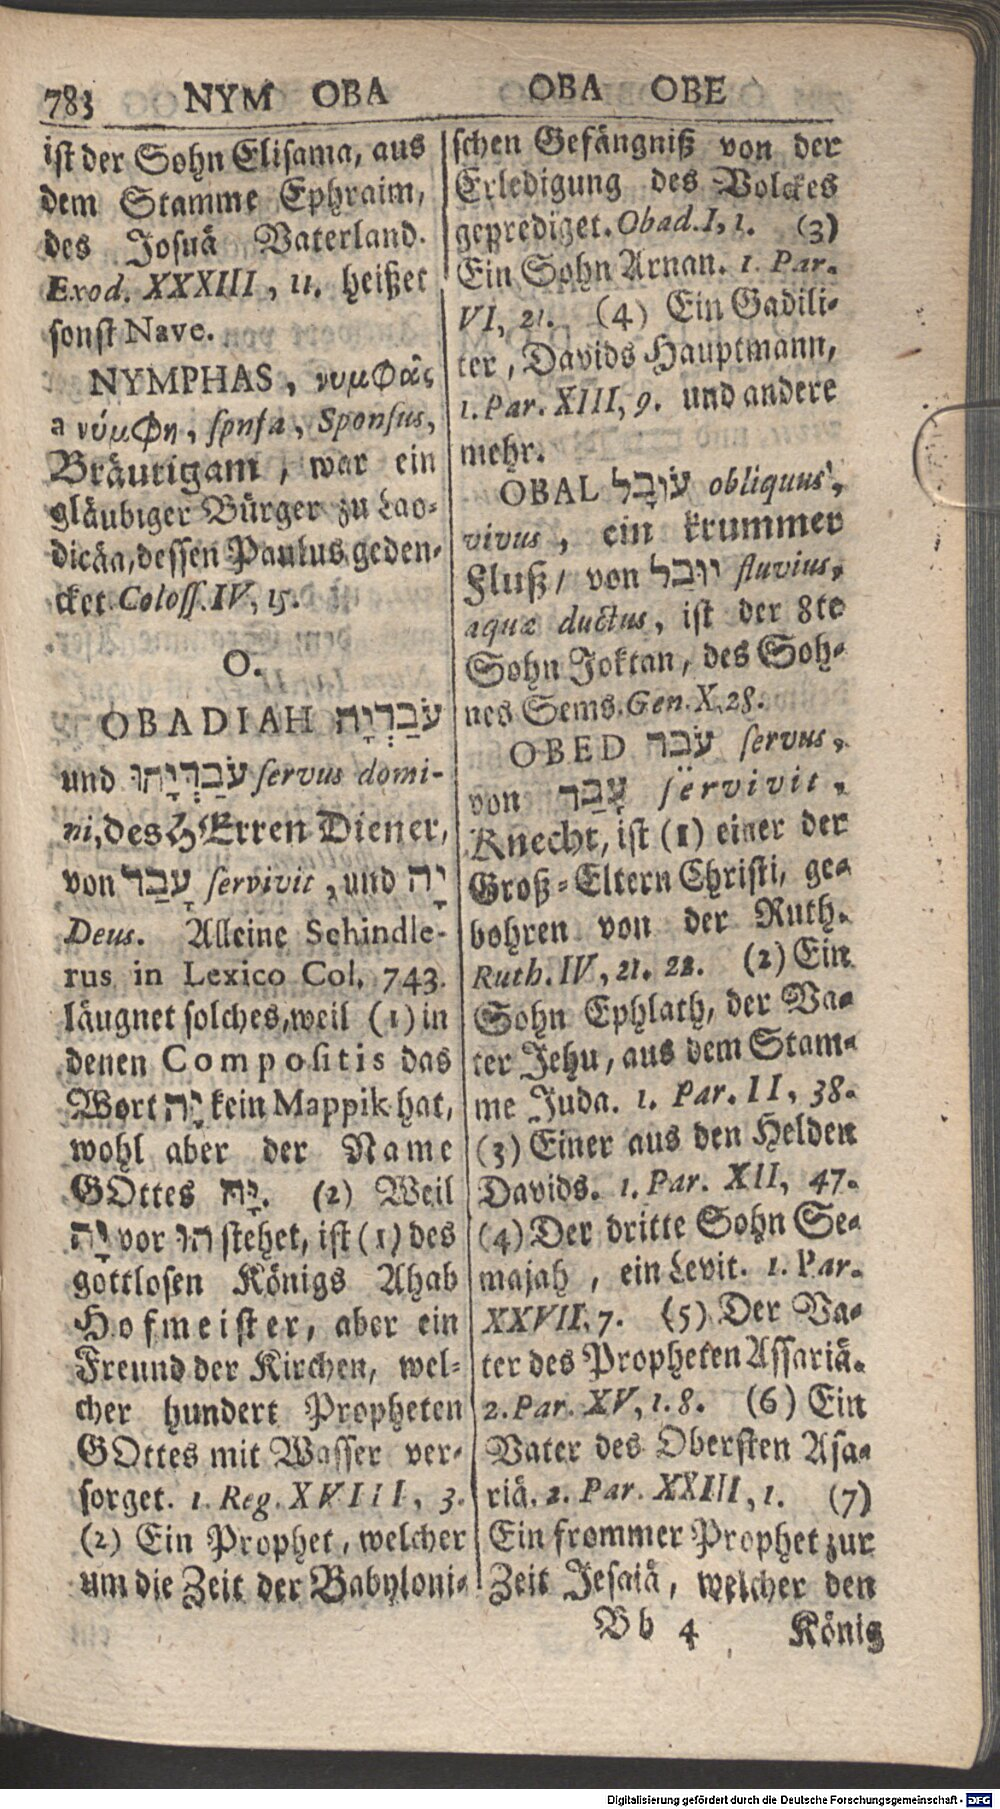 783 NYM OBA OBA OBE
ist der Sohn Elisama, aus
dem Stamme Ephraim,
des Josuä Vaterland.
Exod. XXXIII, 11. heißet
sonst Nave.
NYMPHAS, νυμφᾶς
a νύμφη, spnsa, Sponsus,
Bräutigam, war ein
gläubiger Bürger zu Lao-
dicäa, dessen Paulus geden-
cket. Coloss. IV, 15.
O.
OBADIAH עֹבַרְיָה
und עֹבַרְיָהוּ servus domi-
ni, des HErren Diener,
von עָבַר servivit, und יָה
Deus. Alleine Schindle-
rus in Lexico Col. 743.
läugnet solches, weil (1) in
denen Compositis das
Wort יָה kein Mappik hat,
wohl aber der Name
GOttes יָהּ. (2) Weil
יָה vor הו stehet, ist (1) des
gottlosen Königs Ahab
Hofmeister, aber ein
Freund der Kirchen, wel-
cher hundert Propheten
GOttes mit Wasser ver-
sorget. 1. Reg. XVIII, 3.
(2) Ein Prophet, welcher
um die Zeit der Babyloni-
schen Gefängniß von der
Erledigung des Volckes
geprediget. Obad. I, 1. (3)
Ein Sohn Arnan. 1. Par.
VI, 21. (4) Ein Gadili-
ter, Davids Hauptmann,
1. Par. XIII, 9. und andere
mehr.
OBAL עוֹבָל obliquus,
vivus, ein krummer
Fluß/ von יוּבַל fluvius,
aquæ ductus, ist der 8te
Sohn Joktan, des Soh-
nes Sems. Gen. X, 28.
OBED עֹבר servus,
von עָבַר servivit,
Knecht, ist (1) einer der
Groß-Eltern Christi, ge-
bohren von der Ruth.
Ruth. IV, 21. 22. (2) Ein
Sohn Ephlath, der Va-
ter Jehu, aus dem Stam-
me Juda. 1. Par. II, 38.
(3) Einer aus den Helden
Davids. 1. Par. XII, 47.
(4) Der dritte Sohn Se-
majah, ein Levit. 1. Par.
XXVII, 7. (5) Der Va-
ter des Propheten Assariä.
2. Par. XV, 1. 8. (6) Ein
Vater des Obersten Asa-
riä. 2. Par. XXIII, 1. (7)
Ein frommer Prophet zur
Zeit Jesaiä, welcher den
Bb 4 König
Digitalisierung gefördert durch die Deutsche Forschungsgemeinschaft - DFG